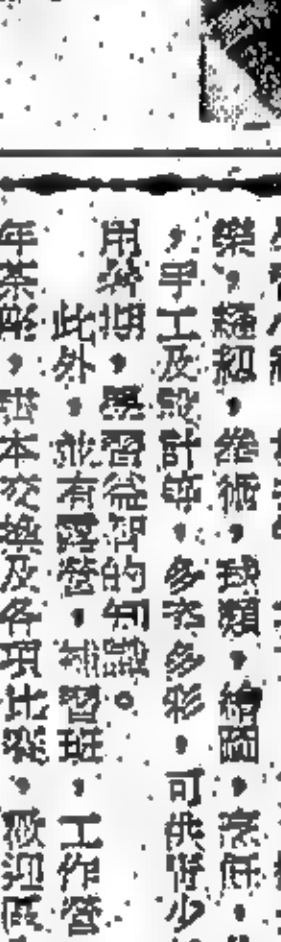 樂，縫紉，拳術，球類，繪圖，烹飪，
，手工及設計等，多姿多彩，可供青少
用暑期，學習益智的知識。
此外，並有露營，補習班，工作營
年茶聚，書本交換及各項比賽，歡迎區